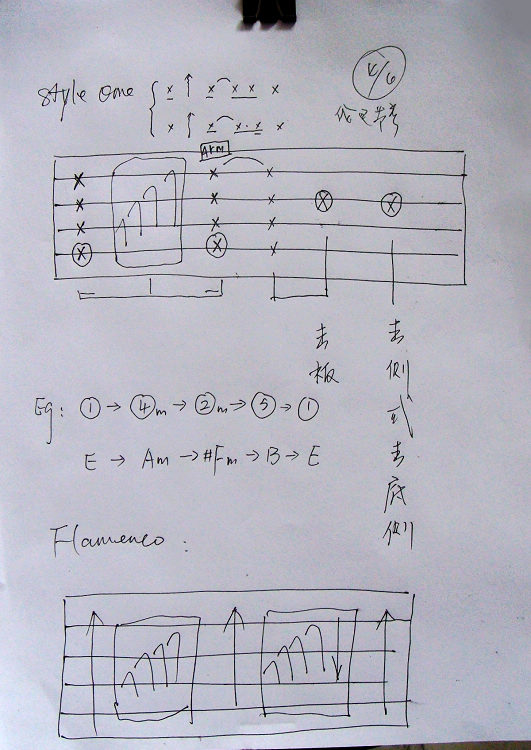 Style One
4/6
ARM
击板
击侧或击底侧
Eg: ① → ④m → ②m → ⑤ → ①
E → Am → #Fm → B → E
Flamenco: